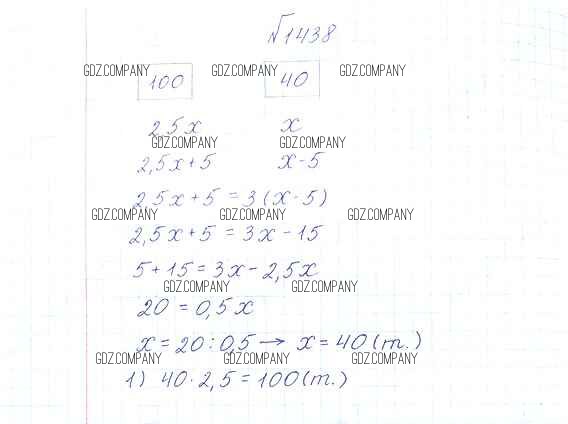 №1438
GDZ.COMPANY GDZ.COMPANY GDZ.COMPANY
100 40
2,5x x
GDZ.COMPANY GDZ.COMPANY
2,5x+5 x-5
2,5x+5=3(x-5)
GDZ.COMPANY GDZ.COMPANY GDZ.COMPANY
2,5x+5=3x-15
5+15=3x-2,5x
GDZ.COMPANY GDZ.COMPANY
20=0,5x
x=20:0,5→ x=40(т.)
GDZ.COMPANY GDZ.COMPANY GDZ.COMPANY
1) 40·2,5=100(т.)